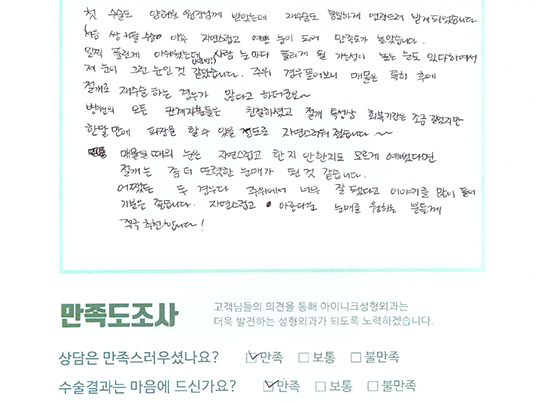 첫 수술도 원장님께 받았는데 재수술도 받게 되었습니다
처음 쌍꺼풀 수술이 아주 자연스럽고 예쁜 눈이 되어 만족도가 높았습니다.
일찍 풀린게 아쉬웠는데 사람 눈마다 풀리게 될 가능성이 높은 눈도 있다하여서
제 눈이 그런 눈인 것 같았습니다. 주위 경우 들어보니 매몰은 특히 후에
절개로 재수술 하는 경우가 많다고 하더군요~
병원의 모든 관계자분들은 친절하셨고 절개 특성상 회복기간은 조금 길었지만
한달 만에 화장을 할 수 있을 정도로 자연스러워 졌습니다~~
매몰일 때의 눈은 자연스럽고 한지 안한지도 모르게 예뻤다면
절개는 좀 더 또렷한 눈매가 된 것 같습니다.
어쨌든 두 경우다 주위에서 너무 잘 됐다고 이야기를 많이 들어
기분은 좋습니다. 자연스럽고 아름다운 눈매를 원하는 분들께
적극 추천합니다!
만족도조사
고객님들의 의견을 통해 아이니크성형외과는
더욱 발전하는 성형외과가 되도록 노력하겠습니다.
상담은 만족스러우셨나요? ☑만족 □보통 □불만족
수술결과는 마음에 드신가요? ☑만족 □보통 □불만족